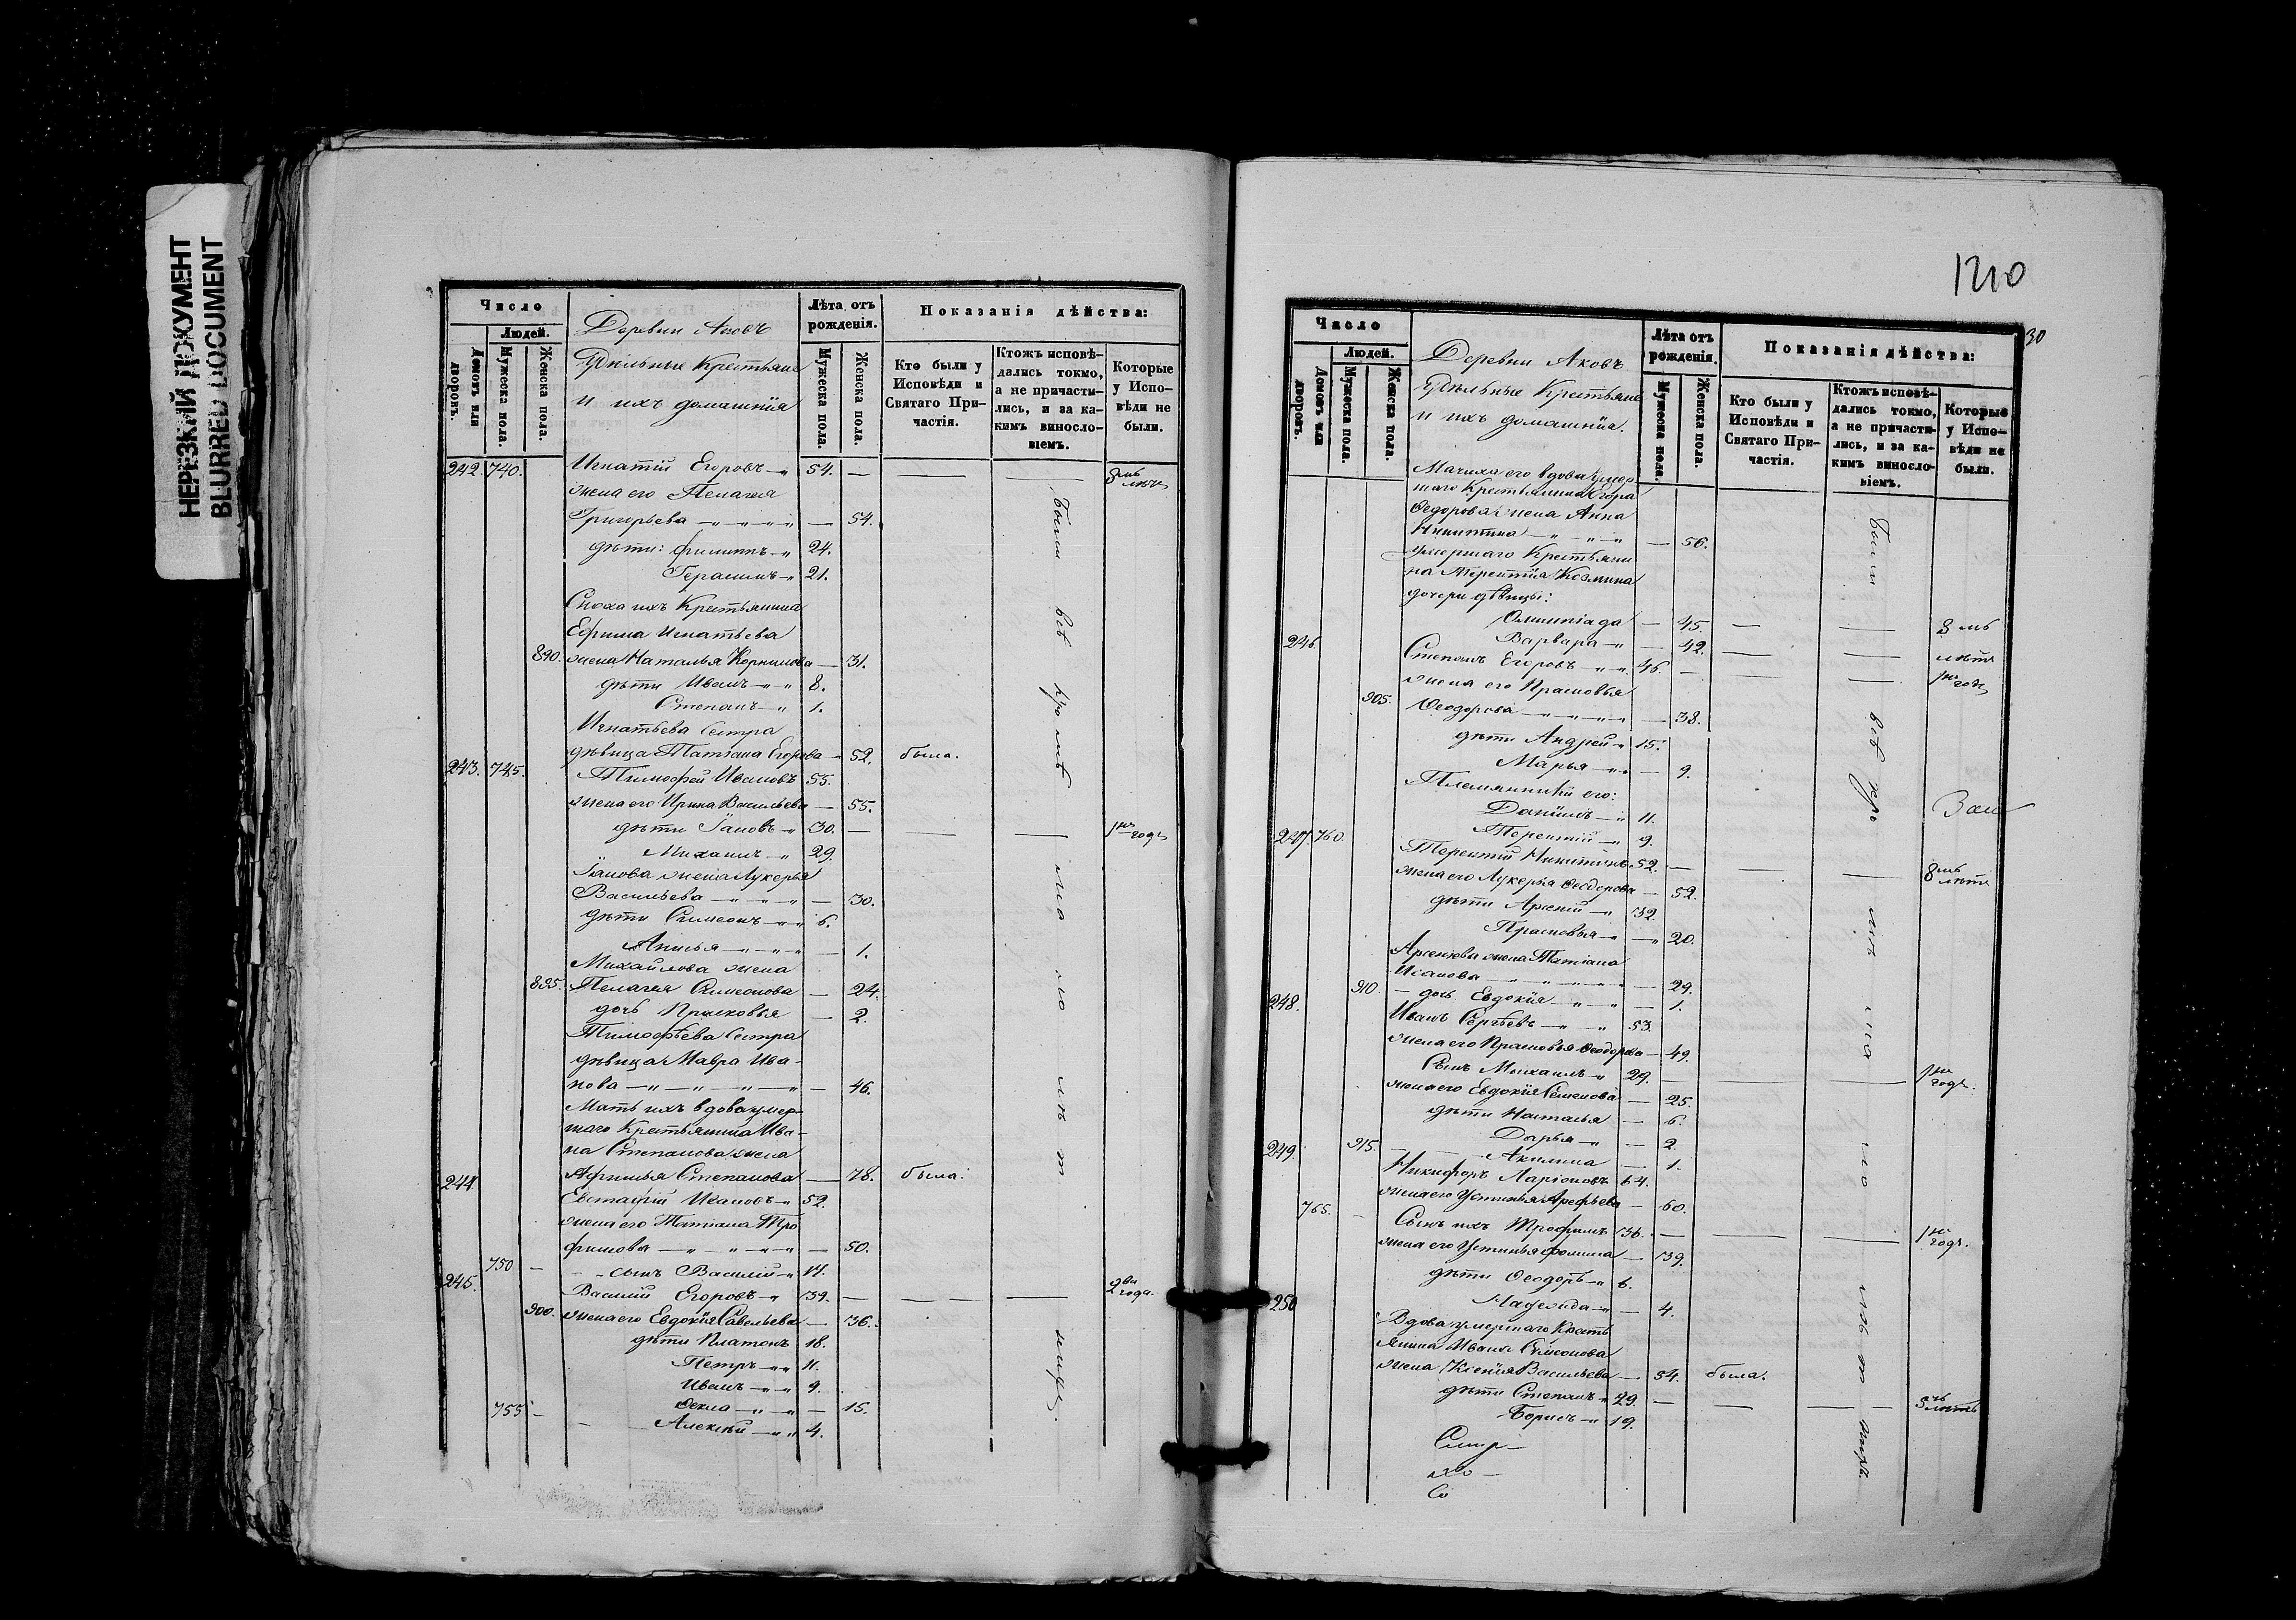 НЕРЕЗКИЙ ДОКУМЕНТ
BLURRED DOCUMENT
Число
Людей.
Домовъ или дворовъ.
Мужеска пола.
Женска пола.
Деревни Аковъ
Удѣльные Крестьяне
и ихъ домашнія
Лѣта отъ рожденія.
Мужеска пола.
Женска пола.
Показанія дѣйства:
Кто были у Исповѣди и Святаго Причастія.
Ктожъ исповѣдались токмо, а не причастились, и за какимъ винословіемъ.
Которые у Исповѣди не были.
242. 740. Игнатій Егоровъ 54. —
жена его Пелагея
Григорьева — 54.
дѣти: Филиппъ 24.
Герасимъ 21.
Сноха ихъ Крестьянина
Ефима Игнатьева
890. жена Наталья Корнилова — 31.
дѣти Иванъ 8.
Степанъ 1.
Игнатьева сестра
дѣвица Татіана Егорова — 52. была.
243. 745. Тимофей Ивановъ 55.
жена его Ирина Васильева — 55.
дѣти Іаковъ 30. — 1нъ годъ
Михаилъ 29.
Іакова жена Лукерья
Васильева — 30.
дѣти Симеонъ 6.
Анисья — 1.
Михайлова жена
895. Пелагея Симеонова — 24.
дочь Прасковья — 2.
Тимофѣева сестра
дѣвица Мавра Ива-
нова — 46.
Мать ихъ вдова умер-
шаго Крестьянина Ива-
на Степанова жена
Афимья Степанова — 78. была.
244. Евстафій Ивановъ 52.
жена его Татіана Тро
фимова — 50.
750 — сынъ Василій 14.
245. Василій Егоровъ 39. — 2ва года.
900. жена его Евдокія Савельева — 36.
дѣти Платонъ 18.
Петръ 11.
Иванъ 9.
Фекла — 15.
755 — Алексѣй 4.
Были всѣ кромѣ
1210
30
Число
Людей.
Домовъ или дворовъ.
Мужеска пола.
Женска пола.
Деревни Аковъ
Удѣльные Крестьяне
и ихъ домашнія.
Лѣта отъ рожденія.
Мужеска пола.
Женска пола.
Показанія дѣйства:
Кто были у Исповѣди и Святаго Причастія.
Ктожъ исповѣдались токмо, а не причастились, и за какимъ винословіемъ.
Которые у Исповѣди не были.
Мачиха его вдова умер-
шаго Крестьянина Егора
Ѳедорова жена Анна
Никитина — 56.
умершаго Крестьяни
на Терентія Козмина
дочери дѣвицы:
Олимпіада — 45. —
246. Варвара — 42. —
Степанъ Егоровъ 46. — 1нъ годъ
жена его Прасковья
905. Ѳеодорова — 38.
дѣти Андрей 15.
Марья — 9.
Племянники его:
Даніилъ 11.
247. 760. Терентій 9.
Терентій Никитинъ 52. —
жена его Лукерья Ѳеодорова — 52.
дѣти Арсеній 32.
Прасковья — 20.
Арсеньева жена Татіана
Иванова — 29.
248. 910. — дочь Евдокія — 1.
Иванъ Сергѣевъ 53.
жена его Прасковья Ѳеодорова — 49.
Сынъ Михаилъ 29. — 1нъ годъ.
жена его Евдокія Семенова — 25.
дѣти Наталья — 6.
Дарья — 2.
249. 915. Акилина — 1.
Никифоръ Ларіоновъ 64.
жена его Устинья Арефьева — 60.
765. — Сынъ ихъ Трофимъ 36. — 1нъ годъ.
жена его Устинья Фомина — 39.
дѣти Ѳеодоръ 6.
250 — 4.
Вдова умершаго Кресть
янина Ивана Симеонова
жена Ксенія Васильева — 54. была.
дѣти Степанъ 29. —
Борисъ 19.
Были всѣ кро